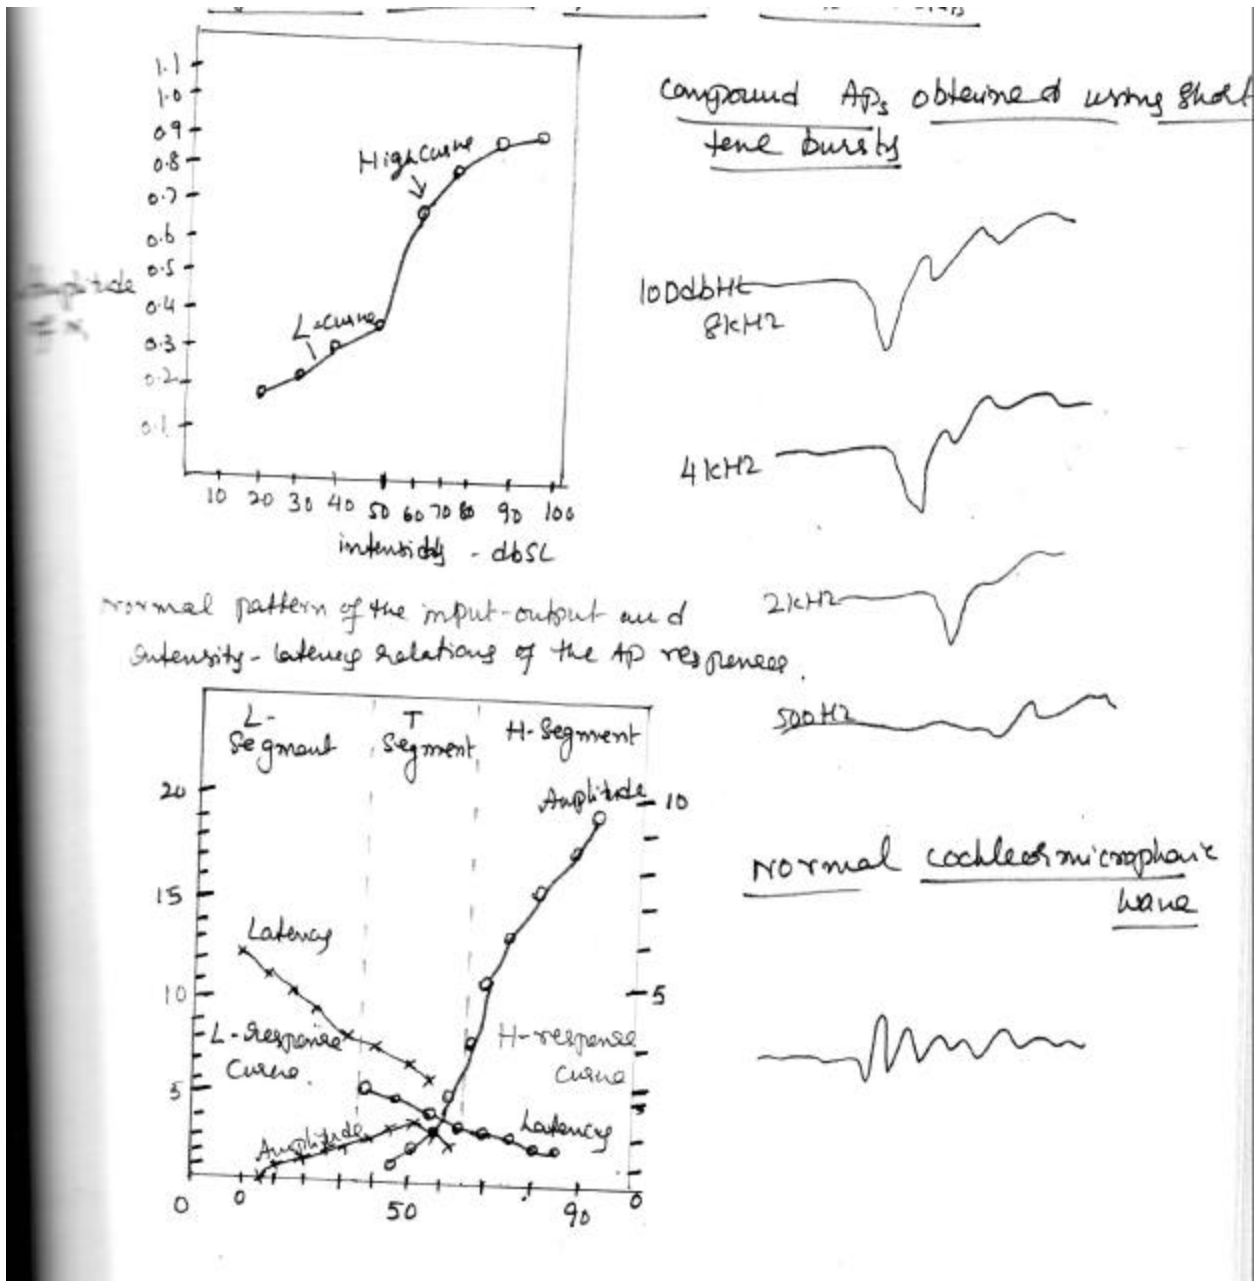 1.1
1.0
0.9
0.8
0.7
0.6
0.5
0.4
0.3
0.2
0.1
High curve
L-curve
10 20 30 40 50 60 70 80 90 100
intensity - dbSL
Normal pattern of the input-output and
intensity-latency relations of the AP responses.
L-
Segment
T
Segment
H-Segment
20
15
10
5
Amplitude
10
5
0
Latency
L-response
Curve.
H-response
curve
Amplitude
Latency
0 0 50 90
Compound APs obtained using short
tone bursts
100dbHL
8kHz
4kHz
2kHz
500Hz
Normal cochlear microphonic
wave